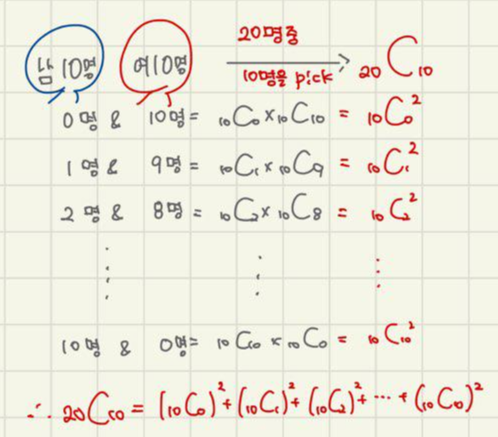 남 10명 여 10명 20명중 10명을 pick → ₂₀C₁₀
0명 & 10명 = ₁₀C₀ × ₁₀C₁₀ = ₁₀C₀²
1명 & 9명 = ₁₀C₁ × ₁₀C₉ = ₁₀C₁²
2명 & 8명 = ₁₀C₂ × ₁₀C₈ = ₁₀C₂²
⋮ ⋮ ⋮
10명 & 0명 = ₁₀C₁₀ × ₁₀C₀ = ₁₀C₁₀²
∴ ₂₀C₁₀ = (₁₀C₀)² + (₁₀C₁)² + (₁₀C₂)² + ⋯ + (₁₀C₁₀)²